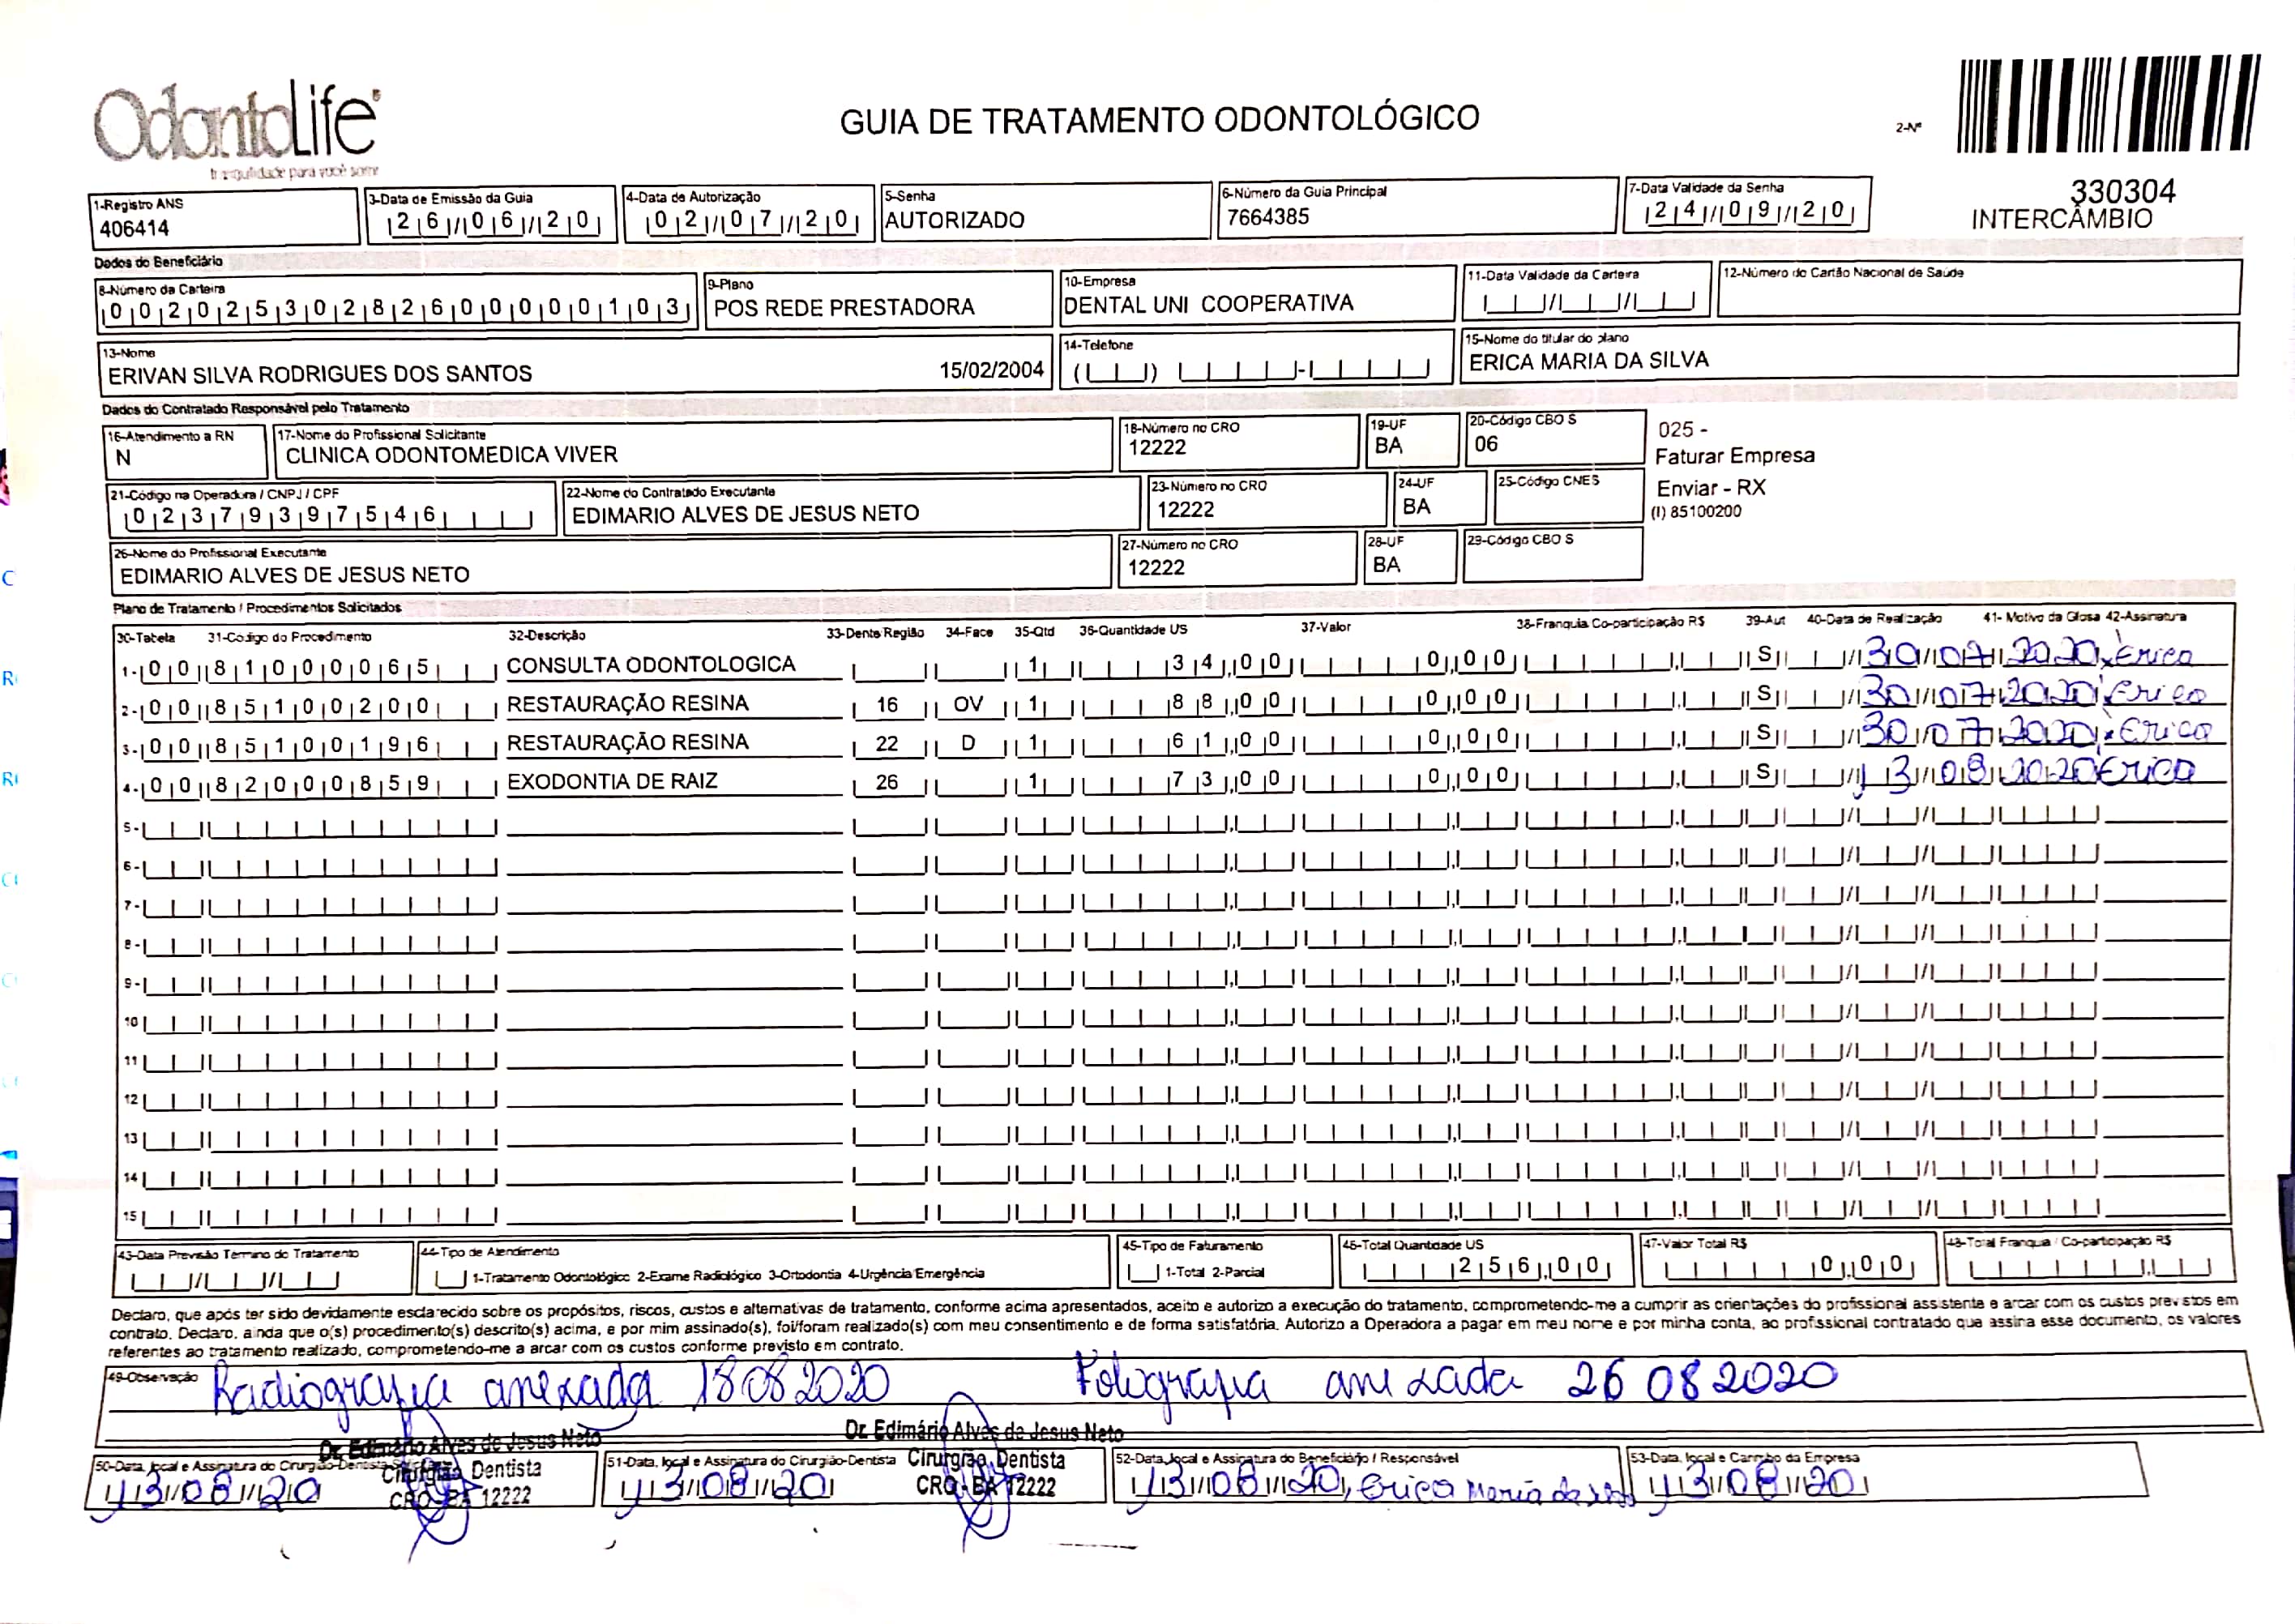 OdontoLife
tranquilidade para você sorrir
GUIA DE TRATAMENTO ODONTOLÓGICO
2-Nº
330304
INTERCÂMBIO
1-Registro ANS
406414
3-Data de Emissão da Guia
26/06/20
4-Data de Autorização
02/07/20
5-Senha
AUTORIZADO
6-Número da Guia Principal
7664385
7-Data Validade da Senha
24/09/20
Dados do Beneficiário
8-Número da Carteira
00202530282600000103
9-Plano
POS REDE PRESTADORA
10-Empresa
DENTAL UNI COOPERATIVA
11-Data Validade da Carteira
12-Número do Cartão Nacional de Saúde
13-Nome
ERIVAN SILVA RODRIGUES DOS SANTOS 15/02/2004
14-Telefone
15-Nome do titular do plano
ERICA MARIA DA SILVA
Dados do Contratado Responsável pelo Tratamento
16-Atendimento a RN
N
17-Nome do Profissional Solicitante
CLINICA ODONTOMEDICA VIVER
18-Número no CRO
12222
19-UF
BA
20-Código CBO S
06
025 -
Faturar Empresa
Enviar - RX
(I) 85100200
21-Código na Operadora / CNPJ / CPF
02379397546
22-Nome do Contratado Executante
EDIMARIO ALVES DE JESUS NETO
23-Número no CRO
12222
24-UF
BA
25-Código CNES
26-Nome do Profissional Executante
EDIMARIO ALVES DE JESUS NETO
27-Número no CRO
12222
28-UF
BA
29-Código CBO S
Plano de Tratamento / Procedimentos Solicitados
30-Tabela 31-Codigo do Procedimento 32-Descrição 33-Dente Região 34-Face 35-Qtd 36-Quantidade US 37-Valor 38-Franquia Co-participação R$ 39-Aut 40-Data de Realização 41- Motivo da Glosa 42-Assinatura
1- 00 81000065 CONSULTA ODONTOLOGICA 1 34,00 0,00 S 30/07/2020 x Erica
2- 00 85100200 RESTAURAÇÃO RESINA 16 OV 1 88,00 0,00 S 30/07/2020 x Erica
3- 00 85100196 RESTAURAÇÃO RESINA 22 D 1 61,00 0,00 S 30/07/2020 x Erica
4- 00 82000859 EXODONTIA DE RAIZ 26 1 73,00 0,00 S 13/08/2020 Erica
5-
6-
7-
8-
9-
10
11
12
13
14
15
43-Data Previsão Término do Tratamento
44-Tipo de Atendimento
1-Tratamento Odontológico 2-Exame Radiológico 3-Ortodontia 4-Urgência/Emergência
45-Tipo de Faturamento
1-Total 2-Parcial
46-Total Quantidade US
256,00
47-Valor Total R$
0,00
48-Total Franquia / Co-participação R$
Declaro, que após ter sido devidamente esclarecido sobre os propósitos, riscos, custos e alternativas de tratamento, conforme acima apresentados, aceito e autorizo a execução do tratamento, comprometendo-me a cumprir as orientações do profissional assistente e arcar com os custos previstos em
contrato. Declaro, ainda que o(s) procedimento(s) descrito(s) acima, e por mim assinado(s), foi/foram realizado(s) com meu consentimento e de forma satisfatória. Autorizo a Operadora a pagar em meu nome e por minha conta, ao profissional contratado que assina esse documento, os valores
referentes ao tratamento realizado, comprometendo-me a arcar com os custos conforme previsto em contrato.
49-Observação
Radiografia anexada 18 08 2020 Fotografia anexada 26 08 2020
50-Data, local e Assinatura do Cirurgião-Dentista
13/08/20
Dr. Edimário Alves de Jesus Neto
Cirurgião Dentista
CRO-BA 12222
51-Data, local e Assinatura do Cirurgião-Dentista
13/08/20
Dr. Edimário Alves de Jesus Neto
Cirurgião Dentista
CRO-BA 12222
52-Data, local e Assinatura do Beneficiário / Responsável
13/08/20, Erica Maria da
53-Data, local e Carimbo da Empresa
13/08/20